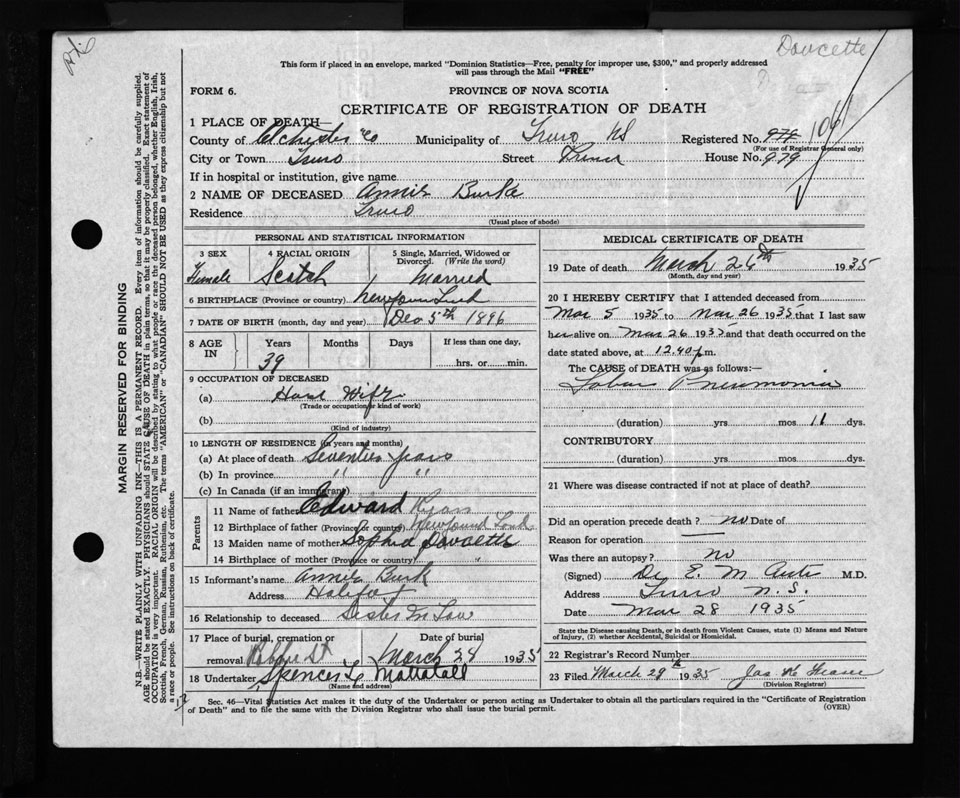 Doucette
This form if placed in an envelope, marked "Dominion Statistics—Free, penalty for improper use, $300," and properly addressed
will pass through the Mail "FREE"
FORM 6.
PROVINCE OF NOVA SCOTIA
CERTIFICATE OF REGISTRATION OF DEATH
1 PLACE OF DEATH
County of Colchester Co Municipality of Truro NS Registered No. 979 1061
(For use of Registrar General only)
City or Town Truro Street Prince House No. 979
If in hospital or institution, give name
2 NAME OF DECEASED Annie Burke
Residence Truro
(Usual place of abode)
PERSONAL AND STATISTICAL INFORMATION
3 SEX 4 RACIAL ORIGIN 5 Single, Married, Widowed or Divorced. (Write the word)
Female Scotch Married
6 BIRTHPLACE (Province or country) Newfoundland
7 DATE OF BIRTH (month, day and year) Dec 5th 1896
8 AGE IN Years Months Days If less than one day,
39 hrs. or min.
9 OCCUPATION OF DECEASED
(a) House Wife
(Trade or occupation or kind of work)
(b)
(Kind of industry)
10 LENGTH OF RESIDENCE (in years and months)
(a) At place of death Seventeen Years
(b) In province " "
(c) In Canada (if an immigrant)
Parents
11 Name of father Edward Ryan
12 Birthplace of father (Province or country) Newfound Land
13 Maiden name of mother Sophia Doucette
14 Birthplace of mother (Province or country) "
15 Informant's name Annie Burk
Address Halifax
16 Relationship to deceased Sister In Law
17 Place of burial, cremation or removal Robie St Date of burial March 28 1935
18 Undertaker Spencer & Mattatall
(Name and address)
MEDICAL CERTIFICATE OF DEATH
19 Date of death March 26th 1935
(Month, day and year)
20 I HEREBY CERTIFY that I attended deceased from
Mar 5 1935 to Mar 26 1935 that I last saw
her alive on Mar 26 1935 and that death occurred on the
date stated above, at 12.40 p.m.
The CAUSE of DEATH was as follows:—
Lobar Pneumonia
(duration) yrs mos 11 dys.
CONTRIBUTORY
(duration) yrs mos dys.
21 Where was disease contracted if not at place of death?
Did an operation precede death? no Date of
Reason for operation
Was there an autopsy? no
(Signed) Dr E. M. M.D.
Address Truro N.S.
Date Mar 28 1935
State the Disease causing Death, or in death from Violent Causes, state (1) Means and Nature
of Injury, (2) whether Accidental, Suicidal or Homicidal.
22 Registrar's Record Number
23 Filed March 29th 1935 Jas
(Division Registrar)
Sec. 46—Vital Statistics Act makes it the duty of the Undertaker or person acting as Undertaker to obtain all the particulars required in the "Certificate of Registration
of Death" and to file the same with the Division Registrar who shall issue the burial permit.
(OVER)
MARGIN RESERVED FOR BINDING
N.B.—WRITE PLAINLY WITH UNFADING INK—THIS IS A PERMANENT RECORD. Every item of information should be carefully supplied.
AGE should be stated EXACTLY. PHYSICIANS should STATE CAUSE OF DEATH in plain terms, so that it may be properly classified. Exact statement of
OCCUPATION is very important. RACIAL ORIGIN will be described by stating to what people or race the deceased person belonged, whether English, Irish,
Scottish, French, German, Russian, Ruthenian, etc. The terms "AMERICAN" or "CANADIAN" SHOULD NOT BE USED as they express citizenship but not
a race or people. See instructions on back of certificate.